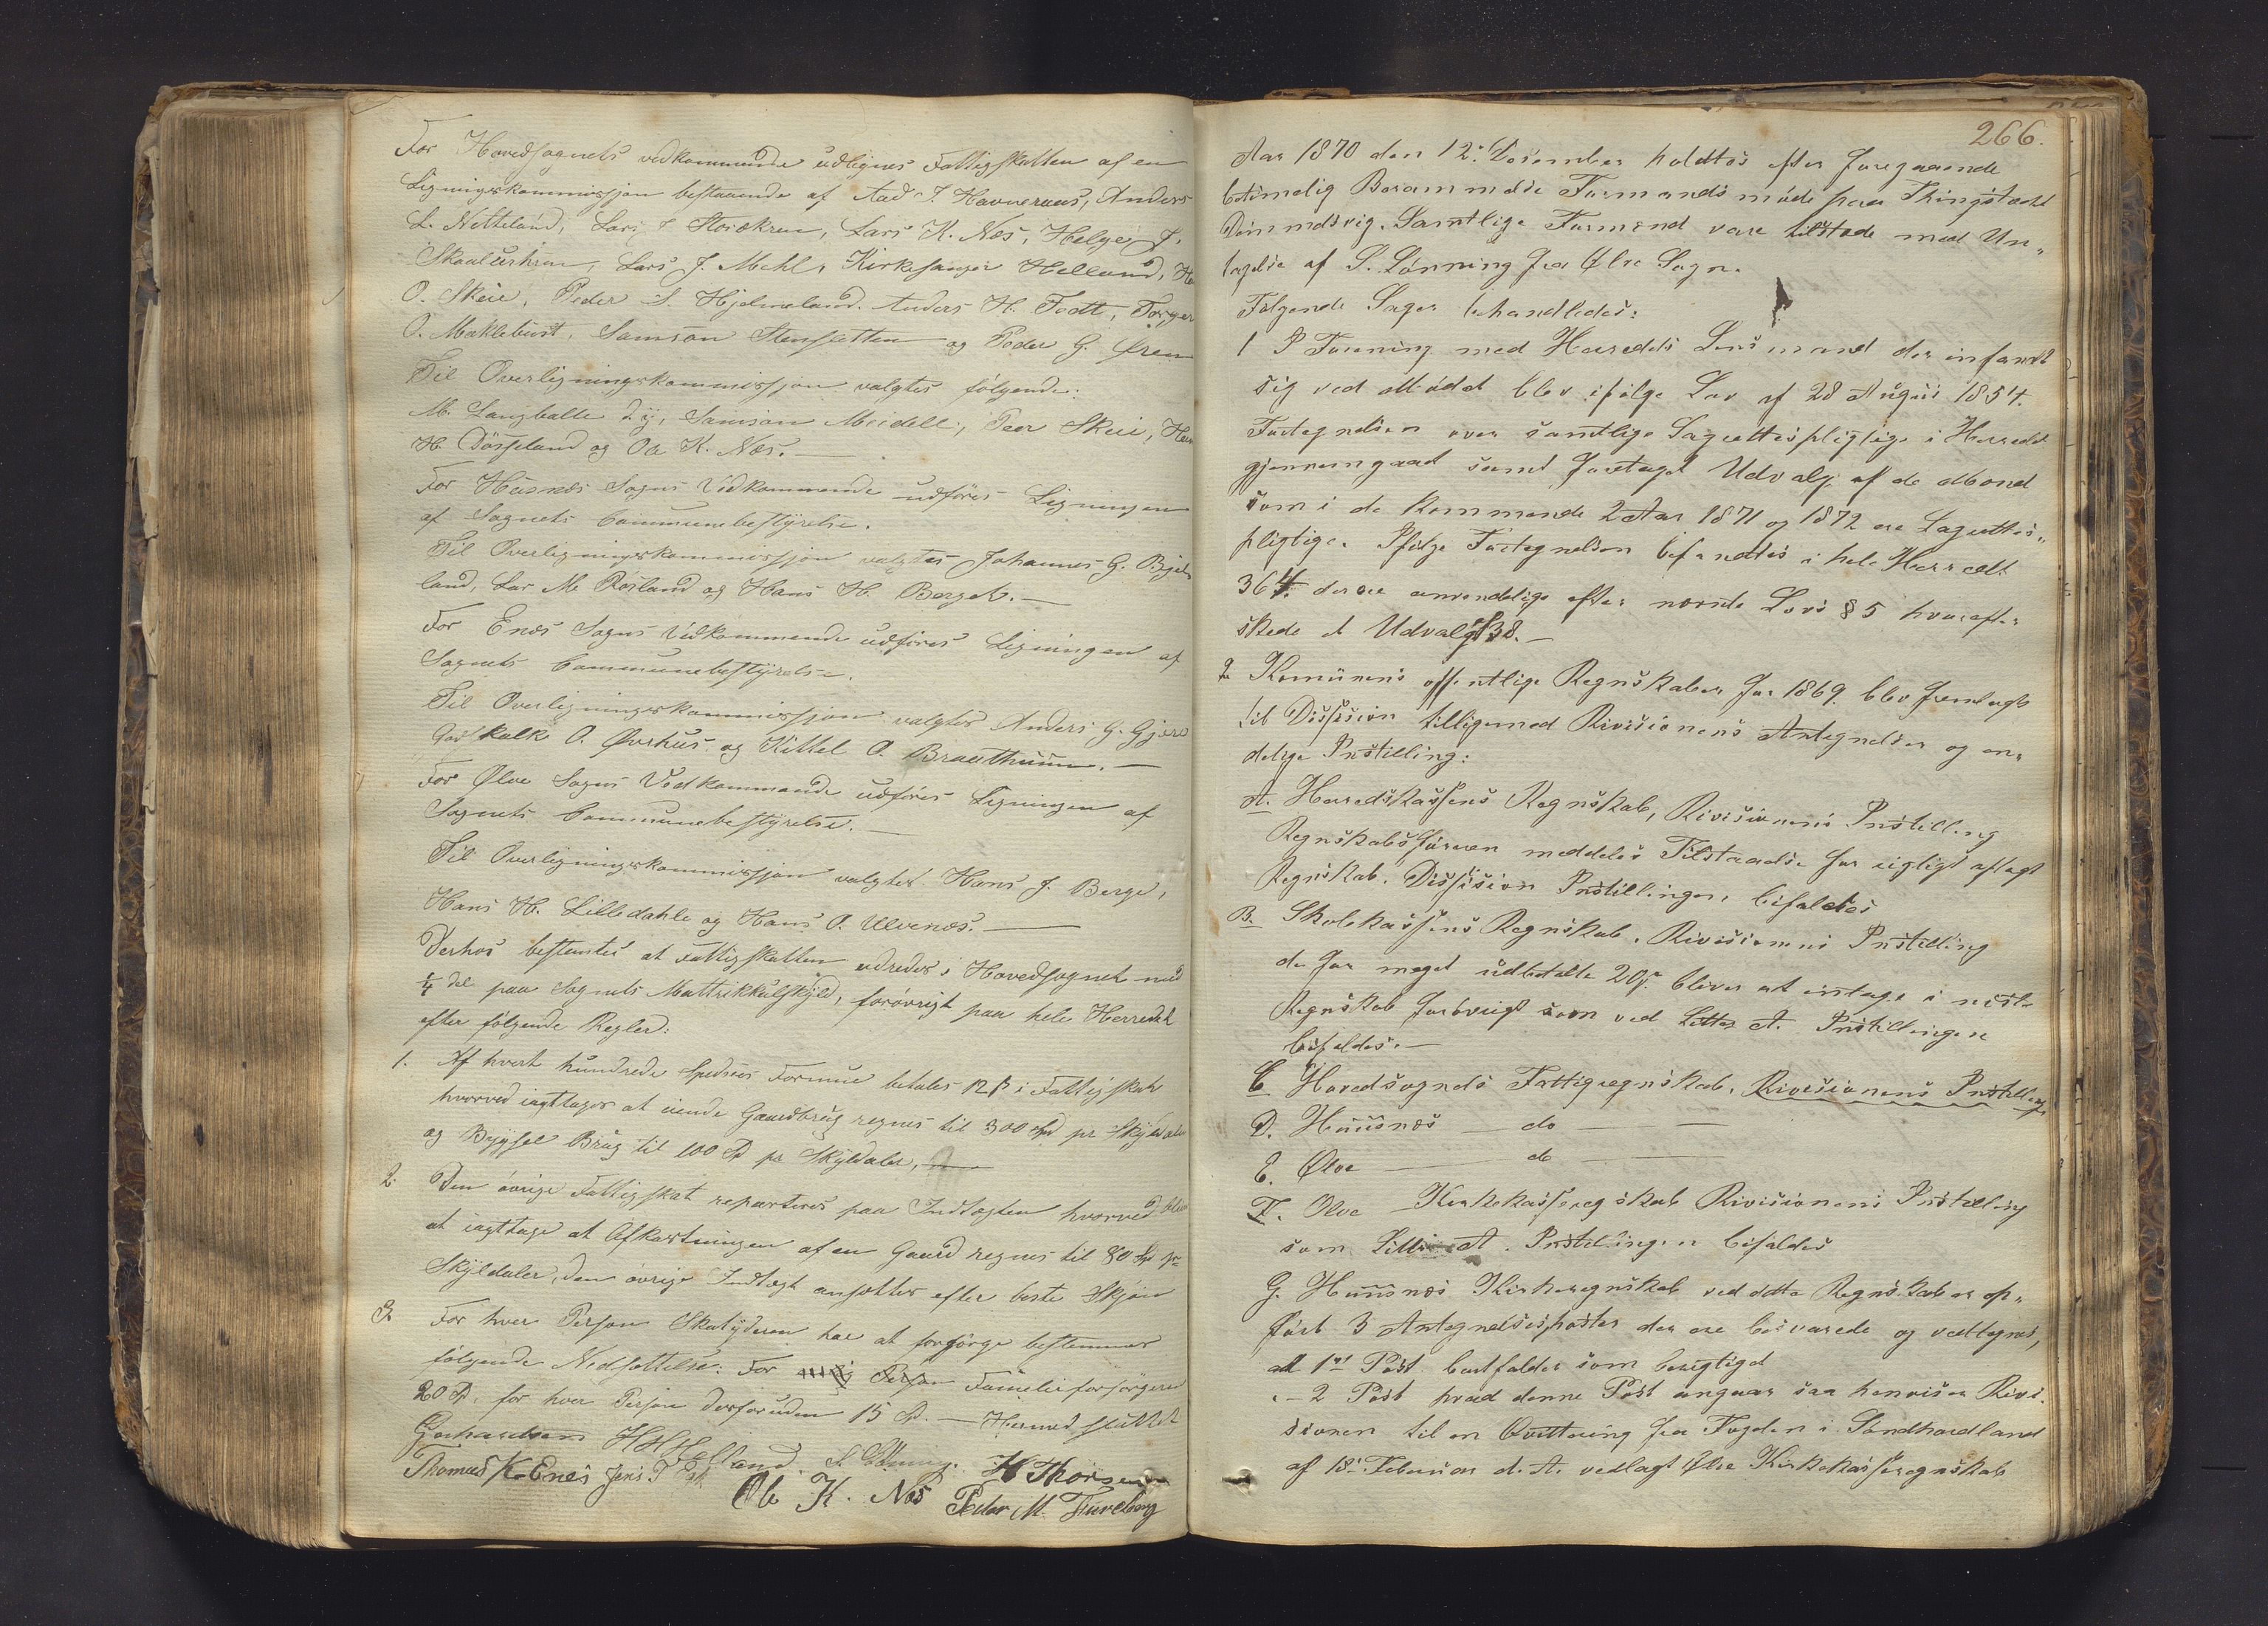 For Hovedsognets vedkommende udlignes Fattigskatten af en
Ligningskommissjon bestaaende af Aad J. Havneraas, Anders
L. Netteland, Lars J Storækren, Lars K. Næs, Helge J.
Skaalurhren, Lars J. Mehl, Kirkesanger Helland, H
O. Skeie, Peder S. Hjelmeland. Anders H. Todt, Torger
O. Mæklebust, Samson Stensletten og Peder G. Øren
Til Overligningskommissjon valgtes følgende:
M. Langballe d.y, Samson Meidell, Peer Skeie,
H. Døsseland og Ole K. Næs.
For Husnæs Sogns Vedkommende udføres Ligningen
af Sognets Communebestyrelse.
Til Overligningskommissjon valgtes Johannes G. Bjel
land, Lar M. Røsland og Hans H. Berget.
For Enæs Sogns Vedkommende udføres Ligningen af
Sognets Communebestyrelse.
Til Overligningskommissjon valgtes Anders G. Gjere
Godskalk O. Øvrhus og Kittel O. Brauthun.
For Ølve Sogns Vedkommende udføres Ligningen af
Sognets Communebestyrelse.
Til Overligningskommissjon valgtes Hans J. Berge,
Hans H. Lilledahle og Hans O. Ulvenæs.
Derhos bestemtes at Fattigskatten udredes i Hovedsognet med
1/4 del paa Sognets Mattrikkulskyld, forøvrigt paa hele Herredet
efter følgende Regler:
1. Af hvert hundrede Spedrs Formue betales 12 ß i Fattigskat
hvorved iagttages at eiende Gaardbrug regnes til 300 Spd pr Skyldaler
og Bygsel Brug til 100 Sp pr Skyldaler,
2. Den øvrige Fattigskat reparteres paa Indtægten hvorved blir
at iagttage at Afkastningen af en Gaard regnes til 80 Sp pr
Skyldaler, den øvrige Indtægt ansættes efter beste Skjøn
3. For hver Person Skatyderen har at forsørge bestemmes
følgende Nedsættelse: For Person Familieforsørgeren
20 Sp. for hver Person desforuden 15 Sp. — Hermed sluttet
Gerhardsen H H Helland. S. Lønning. H Thorsen
Thomas K. Enes Jens T Eik Ole K. Næs Peder M. Fureberg
266.
Aar 1870 den 12. December holdtes efter foregaaende
betimelig Berammelse Formandsmøde paa Thingstedet
Dimmelsvig. Samtlige Formænd vare tilstede med Un„
tagelse af S. Lønning fra Ølve Sogn.
Følgende Sager behandledes:
1 I Forening med Herredets Lensmand der infandt
sig ved Mødet blev ifølge Lov af 28 August 1854.
Fortegnelsen over samtlige Lagrettespligtige i Herredet
gjennemgaaet samt foretaget Udvalg af de Mænd
som i de kommende 2 Aar 1871 og 1872 ere Lagrettes„
pligtige. Ifølge Fortegnelsen befandtes i hele Herredet
364. der ere anvendelige efter nævnte Lovs § 5 hvorefter
skede et Udvalg 38.
2 Komunens offentlige Regnskaber for 1869. blev fremlagt
til Disission tilligemed Rivisionens Antegnelser og en„
delige Instilling:
A. Heredskassens Regnskab, Rivisionens Instilling
Regnskabsføreren meddeles Tilstaaelse for rigtigt aflagt
Regnskab. Disission Instillingen bifaldes
B. Skolekassens Regnskab. Rivisionens Instilling
de for meget udbetalte 20ß bliver at indtage i næste
Regnskab forøvrigt som ved Litter A. Instillingen
bifaldes.
C Hovedsognets Fattigregnskab. Rivisionens Instilling
D. Huusnæs — do —
E. Ølve — do —
F. Ølve Kirkekasseregnskab Rivisionens Instilling
som Littr A. Instillingen bifaldes
G. Huusnæs Kirkeregnskab ved dette Regnskab er op„
ført 3 Antegnelsesposter der ere besvarede og vedtegnes,
ad 1st Post bortfalder som berigtiget
" — 2 Post hvad denne Post angaar saa henviser Rivi
sionen til en Qvittering fra Fogden i Søndhordland
af 18. Februar d. A. vedlagt Ølve Kirkekasseregnskab